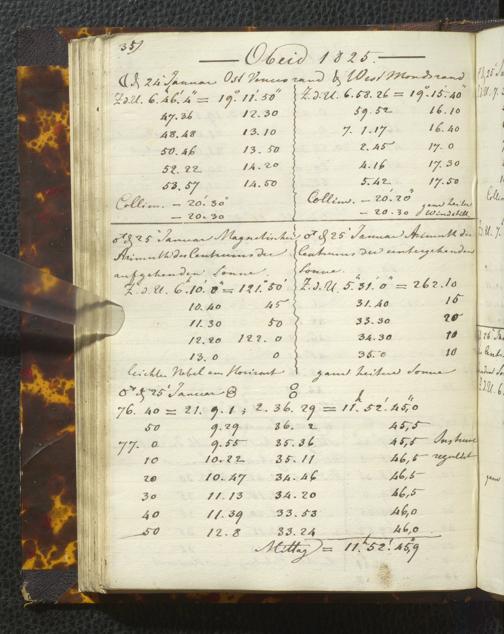 35)
— Obeid 1825. —
☾ d. 24 Januar Ost Venusrand & West Mondsrand
Z.d.U. 6.46.4" = 19° 11' 50"
47.36 12.30
48.48 13.10
50.46 13.50
52.22 14.20
53.57 14.50
Collim. – 20.30"
– 20.30
Z.d.U. 6.58.26 = 19°.15'.40"
59.52 16.10
7. 1.17 16.40
2.45 17.0
4.16 17.30
5.42 17.50
Collim. – 20.20"
– 20.30 ganz heiter
Windstill
♂ d. 25 Januar Magnetischer
Azimuth des Centrums der
aufgehenden Sonne.
Z.d.U. 6.10.0" = 121.50
10.40 45
11.30 50
12.20 122.0
13.0 0
leichter Nebel am Horizont
♂ d. 25 Januar Azimuth des
Centrums der untergehenden
Sonne.
Z.d.U. 5.31.0" = 262.10
31.40 15
33.30 20
34.30 10
35.0 10
ganz heitere Sonne
♂ d. 25 Januar
76. 40 = 21. 9. 1 ; 2. 36. 29 = 11. 52. 45,0
50 9.29 36. 2 45,5
77. 0 9.55 35.36 45,5
10 10.22 35.11 46,5
20 10.47 34.46 46,5
30 11.13 34.20 46,5
40 11.39 33.53 46,0
50 12.8 33.24 46,0
Mittag = 11.52.45,9